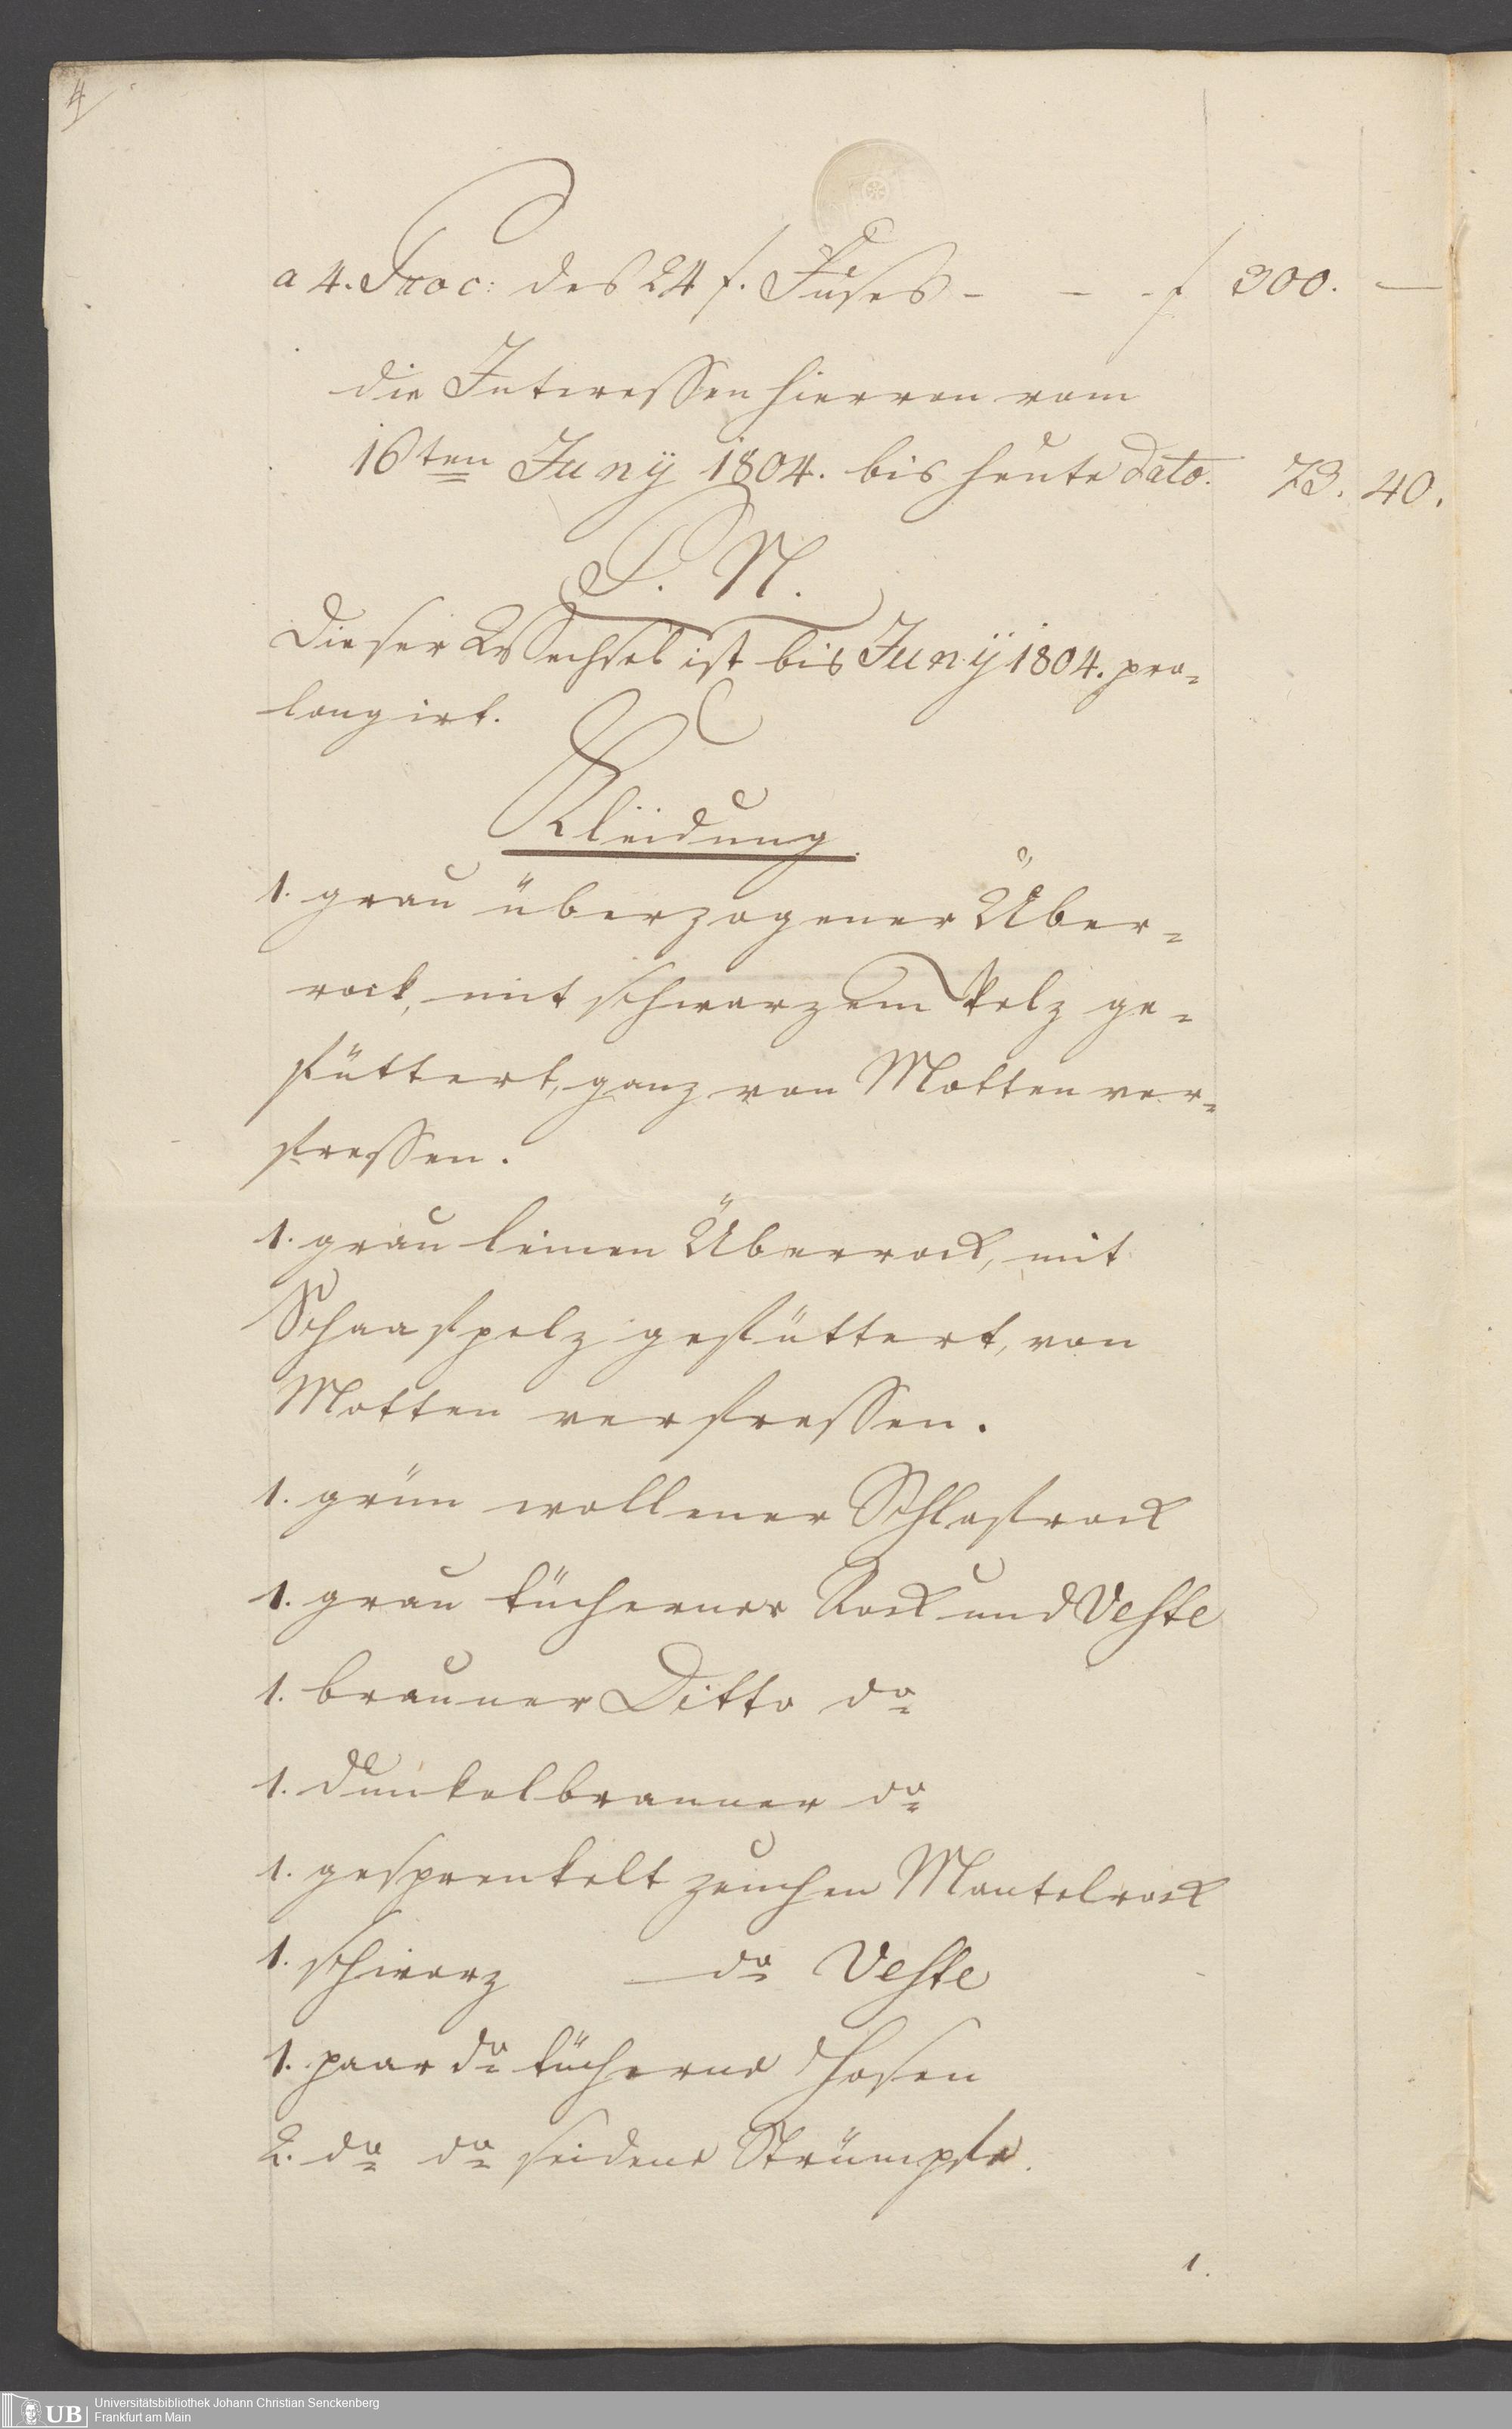 4
a 4. Proc: des 24 f. Fuses - - - f 300. —
die Interessen hiervon vom
16ten Juny 1804. bis heute Dato. 73. 40.
P. N.
Dieser Wechsel ist bis Juny 1804. pro=
longirt.
Kleidung.
1. grau überzogener Über=
rock, mit schwarzem Pelz ge=
füttert, ganz von Motten ver=
fressen.
1. grau leinen Überrock, mit
Schaafpelz gefüttert, von
Motten verfressen.
1. grün wollener Schlafrock
1. grau tücherner Rock und Veste
1. brauner Ditto do
1. dunkelbrauner do
1. gesprenkelt zeuchen Mantelrock
1. schwarz — do Veste
1. paar do tücherne Hosen
2. do do seidene Strümpfe.
1.
UB Universitätsbibliothek Johann Christian Senckenberg
Frankfurt am Main